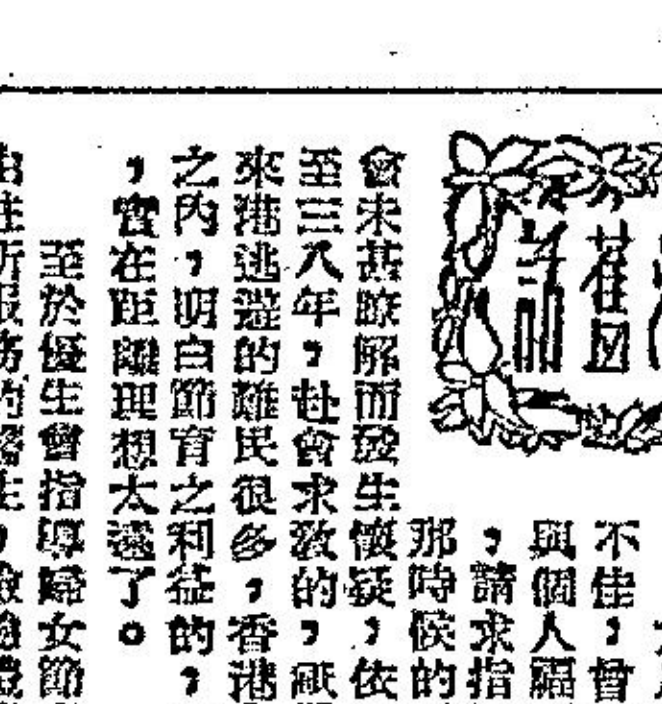 不佳，曾
與個人福
，請求指
那時候的
會未甚瞭解而發生懷疑，依
至三八年，社會求救的，祇
來港逃避的難民很多，香港
之內，明白節育之利益的，
，實在距離理想太遠了。
至於優生會指導婦女節